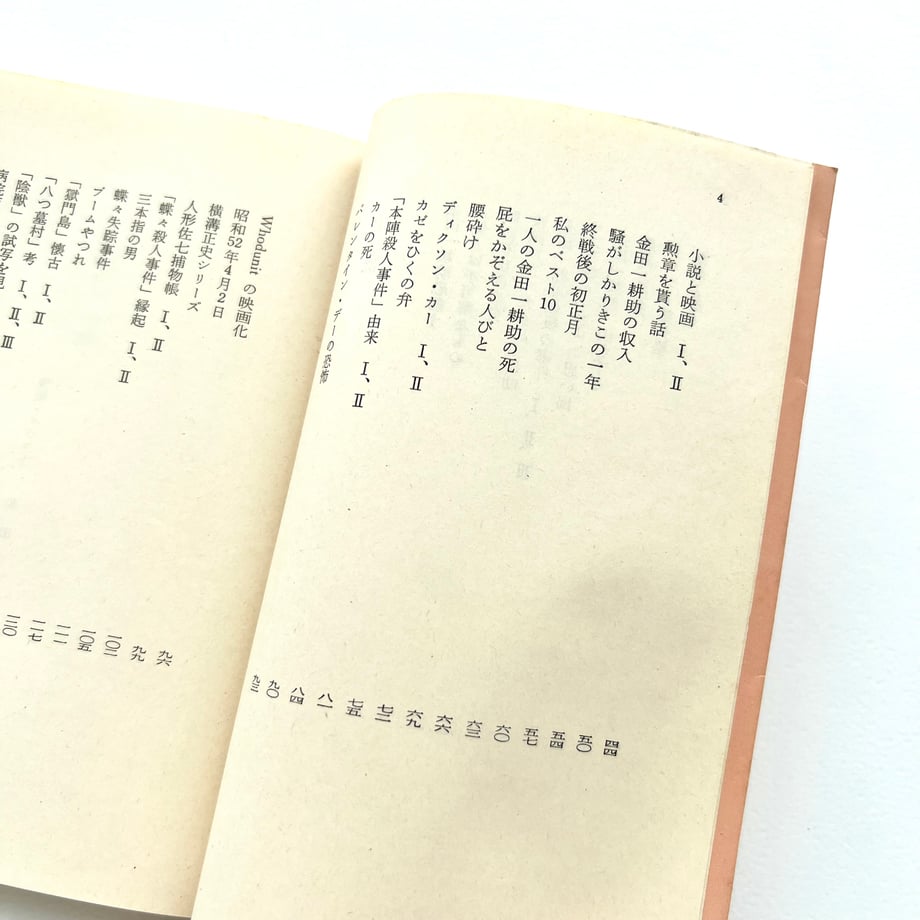 4
小説と映画 Ⅰ、Ⅱ 四四
勲章を貰う話 五〇
金田一耕助の収入 五四
騒がしかりきこの一年 五七
終戦後の初正月 六〇
私のベスト10 六三
一人の金田一耕助の死 六六
屁をかぞえる人びと 六九
腰砕け 七二
ディクソン・カー Ⅰ、Ⅱ 七五
カゼをひくの弁 八一
「本陣殺人事件」由来 Ⅰ、Ⅱ 八四
カーの死 九〇
バレンタイン・デーの恐怖 九三
Whodunit の映画化 九六
昭和52年4月2日 九九
横溝正史シリーズ 一〇二
人形佐七捕物帳 Ⅰ、Ⅱ 一〇五
「蝶々殺人事件」縁起 Ⅰ、Ⅱ 一一一
三本指の男 一一七
蝶々失踪事件 一二〇
ブームやつれ
「獄門島」懐古 Ⅰ、Ⅱ
「八つ墓村」考 Ⅰ、Ⅱ、Ⅲ
「陰獣」の試写を見